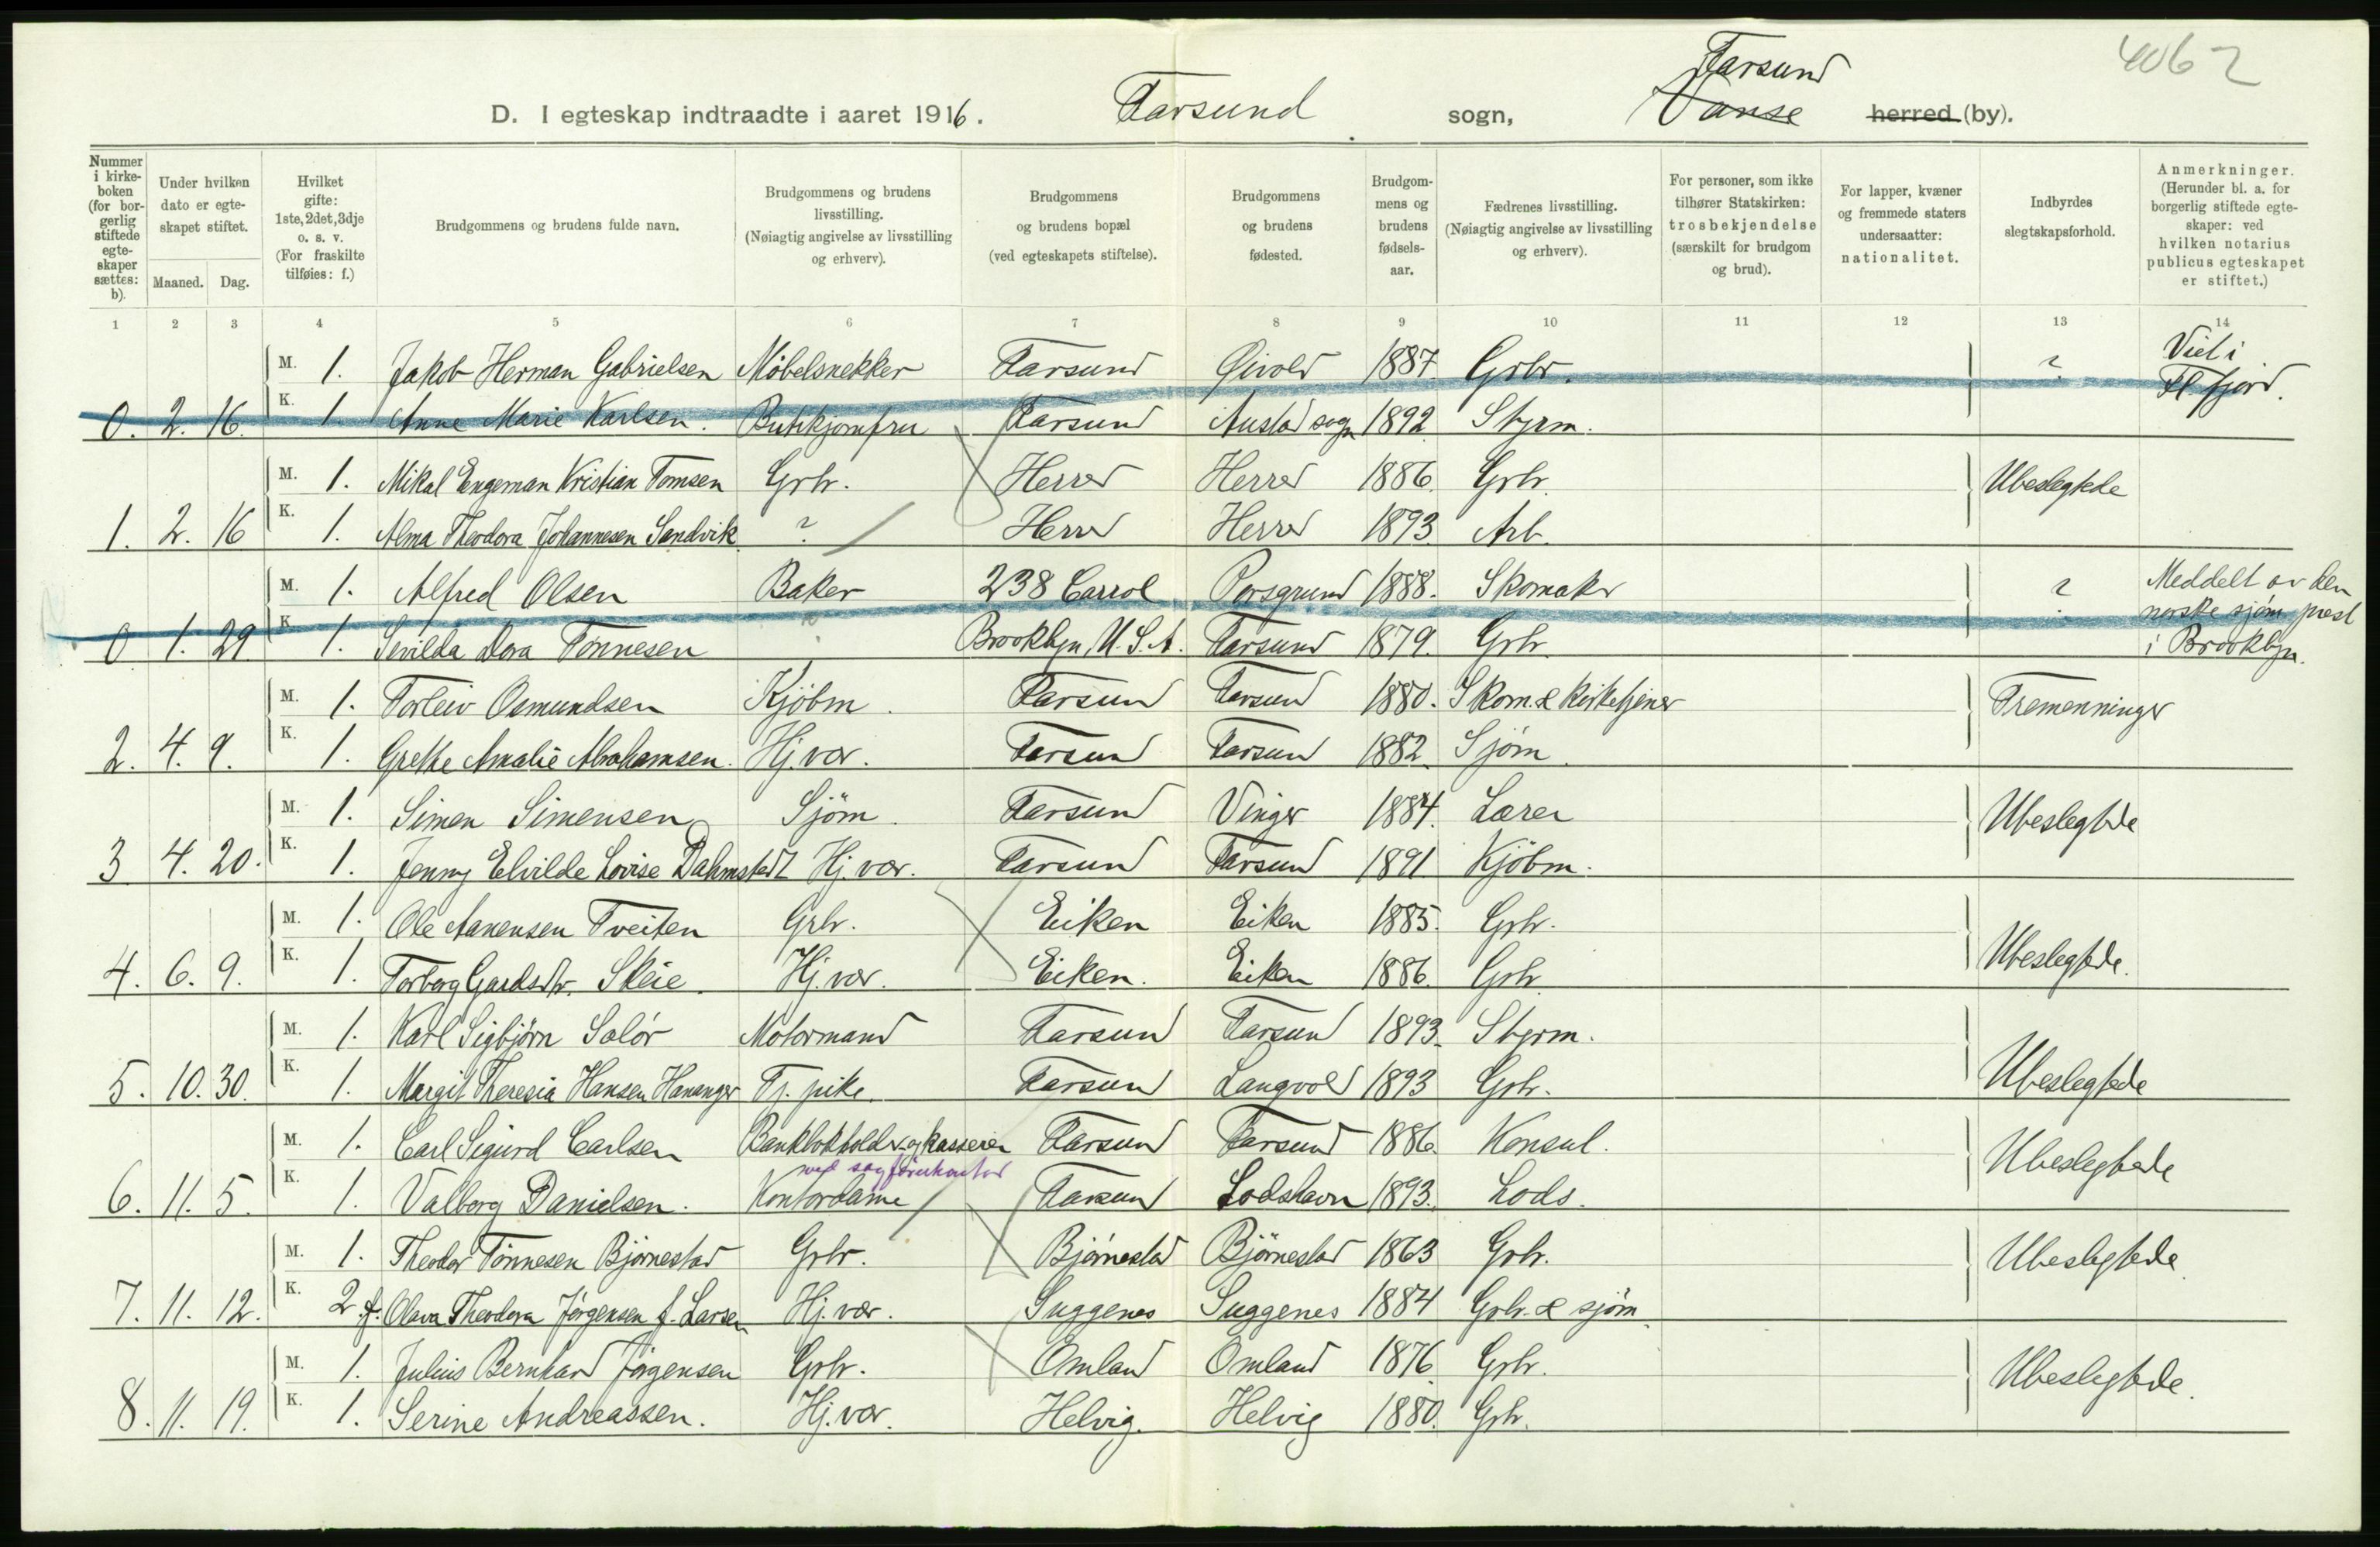 4062
Farsund
D. I egteskap indtraadte i aaret 1916. Farsund sogn, Vanse herred (by).
Nummer i kirkeboken (for borgerlig stiftede egteskaper sættes: b).
Under hvilken dato er egteskapet stiftet.
Maaned. Dag.
Hvilket gifte: 1ste, 2det, 3dje o. s. v. (For fraskilte tilføies: f.)
Brudgommens og brudens fulde navn.
Brudgommens og brudens livsstilling. (Nøiagtig angivelse av livsstilling og erhverv).
Brudgommens og brudens bopæl (ved egteskapets stiftelse).
Brudgommens og brudens fødested.
Brudgommens og brudens fødselsaar.
Fædrenes livsstilling. (Nøiagtig angivelse av livsstilling og erhverv).
For personer, som ikke tilhører Statskirken: trosbekjendelse (særskilt for brudgom og brud).
For lapper, kvæner og fremmede staters undersaatter: nationalitet.
Indbyrdes slegtskapsforhold.
Anmerkninger. (Herunder bl. a. for borgerlig stiftede egteskaper: ved hvilken notarius publicus egteskapet er stiftet.)
1 2 3 4 5 6 7 8 9 10 11 12 13 14
M. 1. Jakob Herman Gabrielsen Möbelsnekker Farsund Givold 1887. Grbr. ? Viet i Fl.fjord.
0. 2. 16. K. 1. Anne Marie Karlsen. Butikjomfru Farsund Austad sogn 1892 Styrm.
M. 1. Mikal Engeman Kristian Tomsen Grbr. Herred Herred 1886. Grbr. Ubeslegtede
1. 2. 16 K. 1. Alma Theodora Johannesen Sandvik ? Herred Herred 1893. Arb.
M. 1. Alfred Olsen Baker 238 Carrol Porsgrund 1888. Skomaker ? Meddelt av den norske sjøm.prest i Brooklyn.
0 1. 29. K. 1. Sevilda Dora Tønnesen Brooklyn, U.S.A. Farsund 1879. Grbr.
M. 1. Torleiv Osmundsen Kjöbm. Farsund Farsund 1880. Skom. & Kirketjener Tremenninger
2. 4. 9. K. 1. Grethe Amalie Abrahamsen. Hj.vær. Farsund Farsund 1882. Sjöm.
M. 1. Simen Simensen Sjöm. Farsund Vinger 1884. Lærer Ubeslegtede
3 4. 20. K. 1. Jenny Elvilde Lovise Dahmstedt Hj.vær. Farsund Farsund 1891 Kjöbm.
M. 1. Ole Aanensen Tveiten Grbr. Eiken Eiken 1885. Grbr. Ubeslegtede.
4. 6. 9. K. 1. Torborg Gardsdtr. Skeie. Hj.vær. Eiken. Eiken 1886. Grbr.
M. 1. Karl Sigbjörn Salör Motormand Farsund Farsund 1893. Styrm. Ubeslegtede
5. 10. 30. K. 1. Margit Theresia Hansen Hananger Tj. pike. Farsund Langvold 1893 Grbr.
M. 1. Carl Sigurd Carlsen Bankbokholder og kasserer Farsund Farsund 1886. Konsul. Ubeslegtede
ved sagförerkontor
6. 11. 5. K. 1. Valborg Danielsen. Kontordame Farsund Lodshavn 1893. Lods.
M. 1. Theodor Tönnesen Björnestad Grbr. Björnestad Björnestad 1863 Grbr. Ubeslegtede.
7. 11. 12. K. 2. f. Olava Theodora Jörgensen f. Larsen Hj.vær. Suggenes Suggenes 1884 Grbr. & sjöm.
M. 1. Julius Bernhard Jörgensen Grbr. Omland Omland 1876. Grbr. Ubeslegtede.
8. 11. 19. K. 1. Serine Andreassen. Hj.vær. Helvig. Helvig 1880. Grbr.